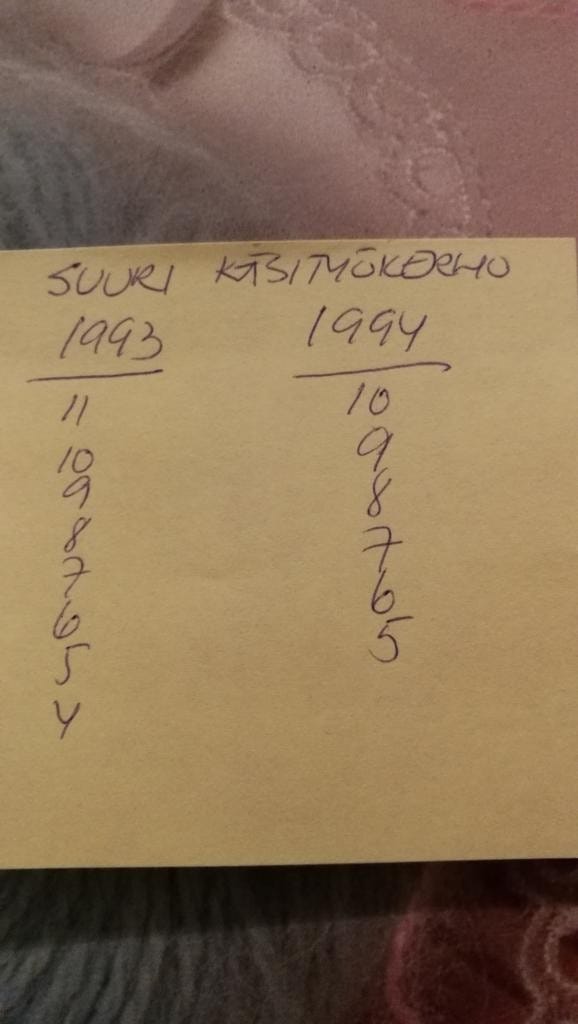 SUURI KÄSITYÖKERHO
1993 1994
11 10
10 9
9 8
8 7
7 6
6 5
5
4